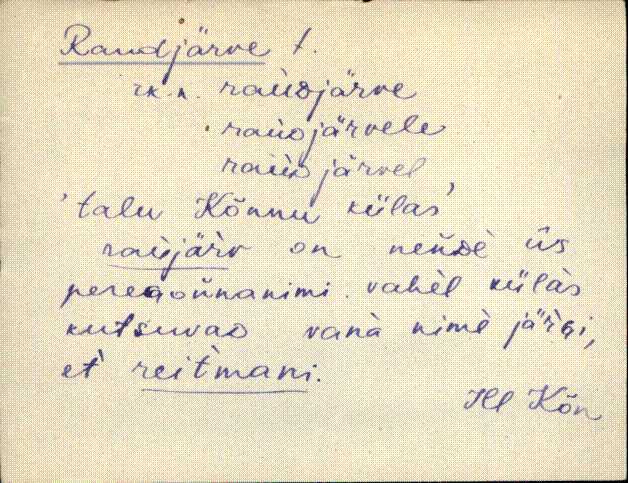 Raudjärve t.
rk. n. raùᴅjärve
raùᴅjärvele
raùᴅjärvel
'talu Kõnnu külas'
raùjärv on neǹᴅè ùs
pereᴅoǹnanimi. vahèl külàs
kutsuvaᴅ vanà nimè järᴅi,
et̀ reit̀mani.
Hl Kõn